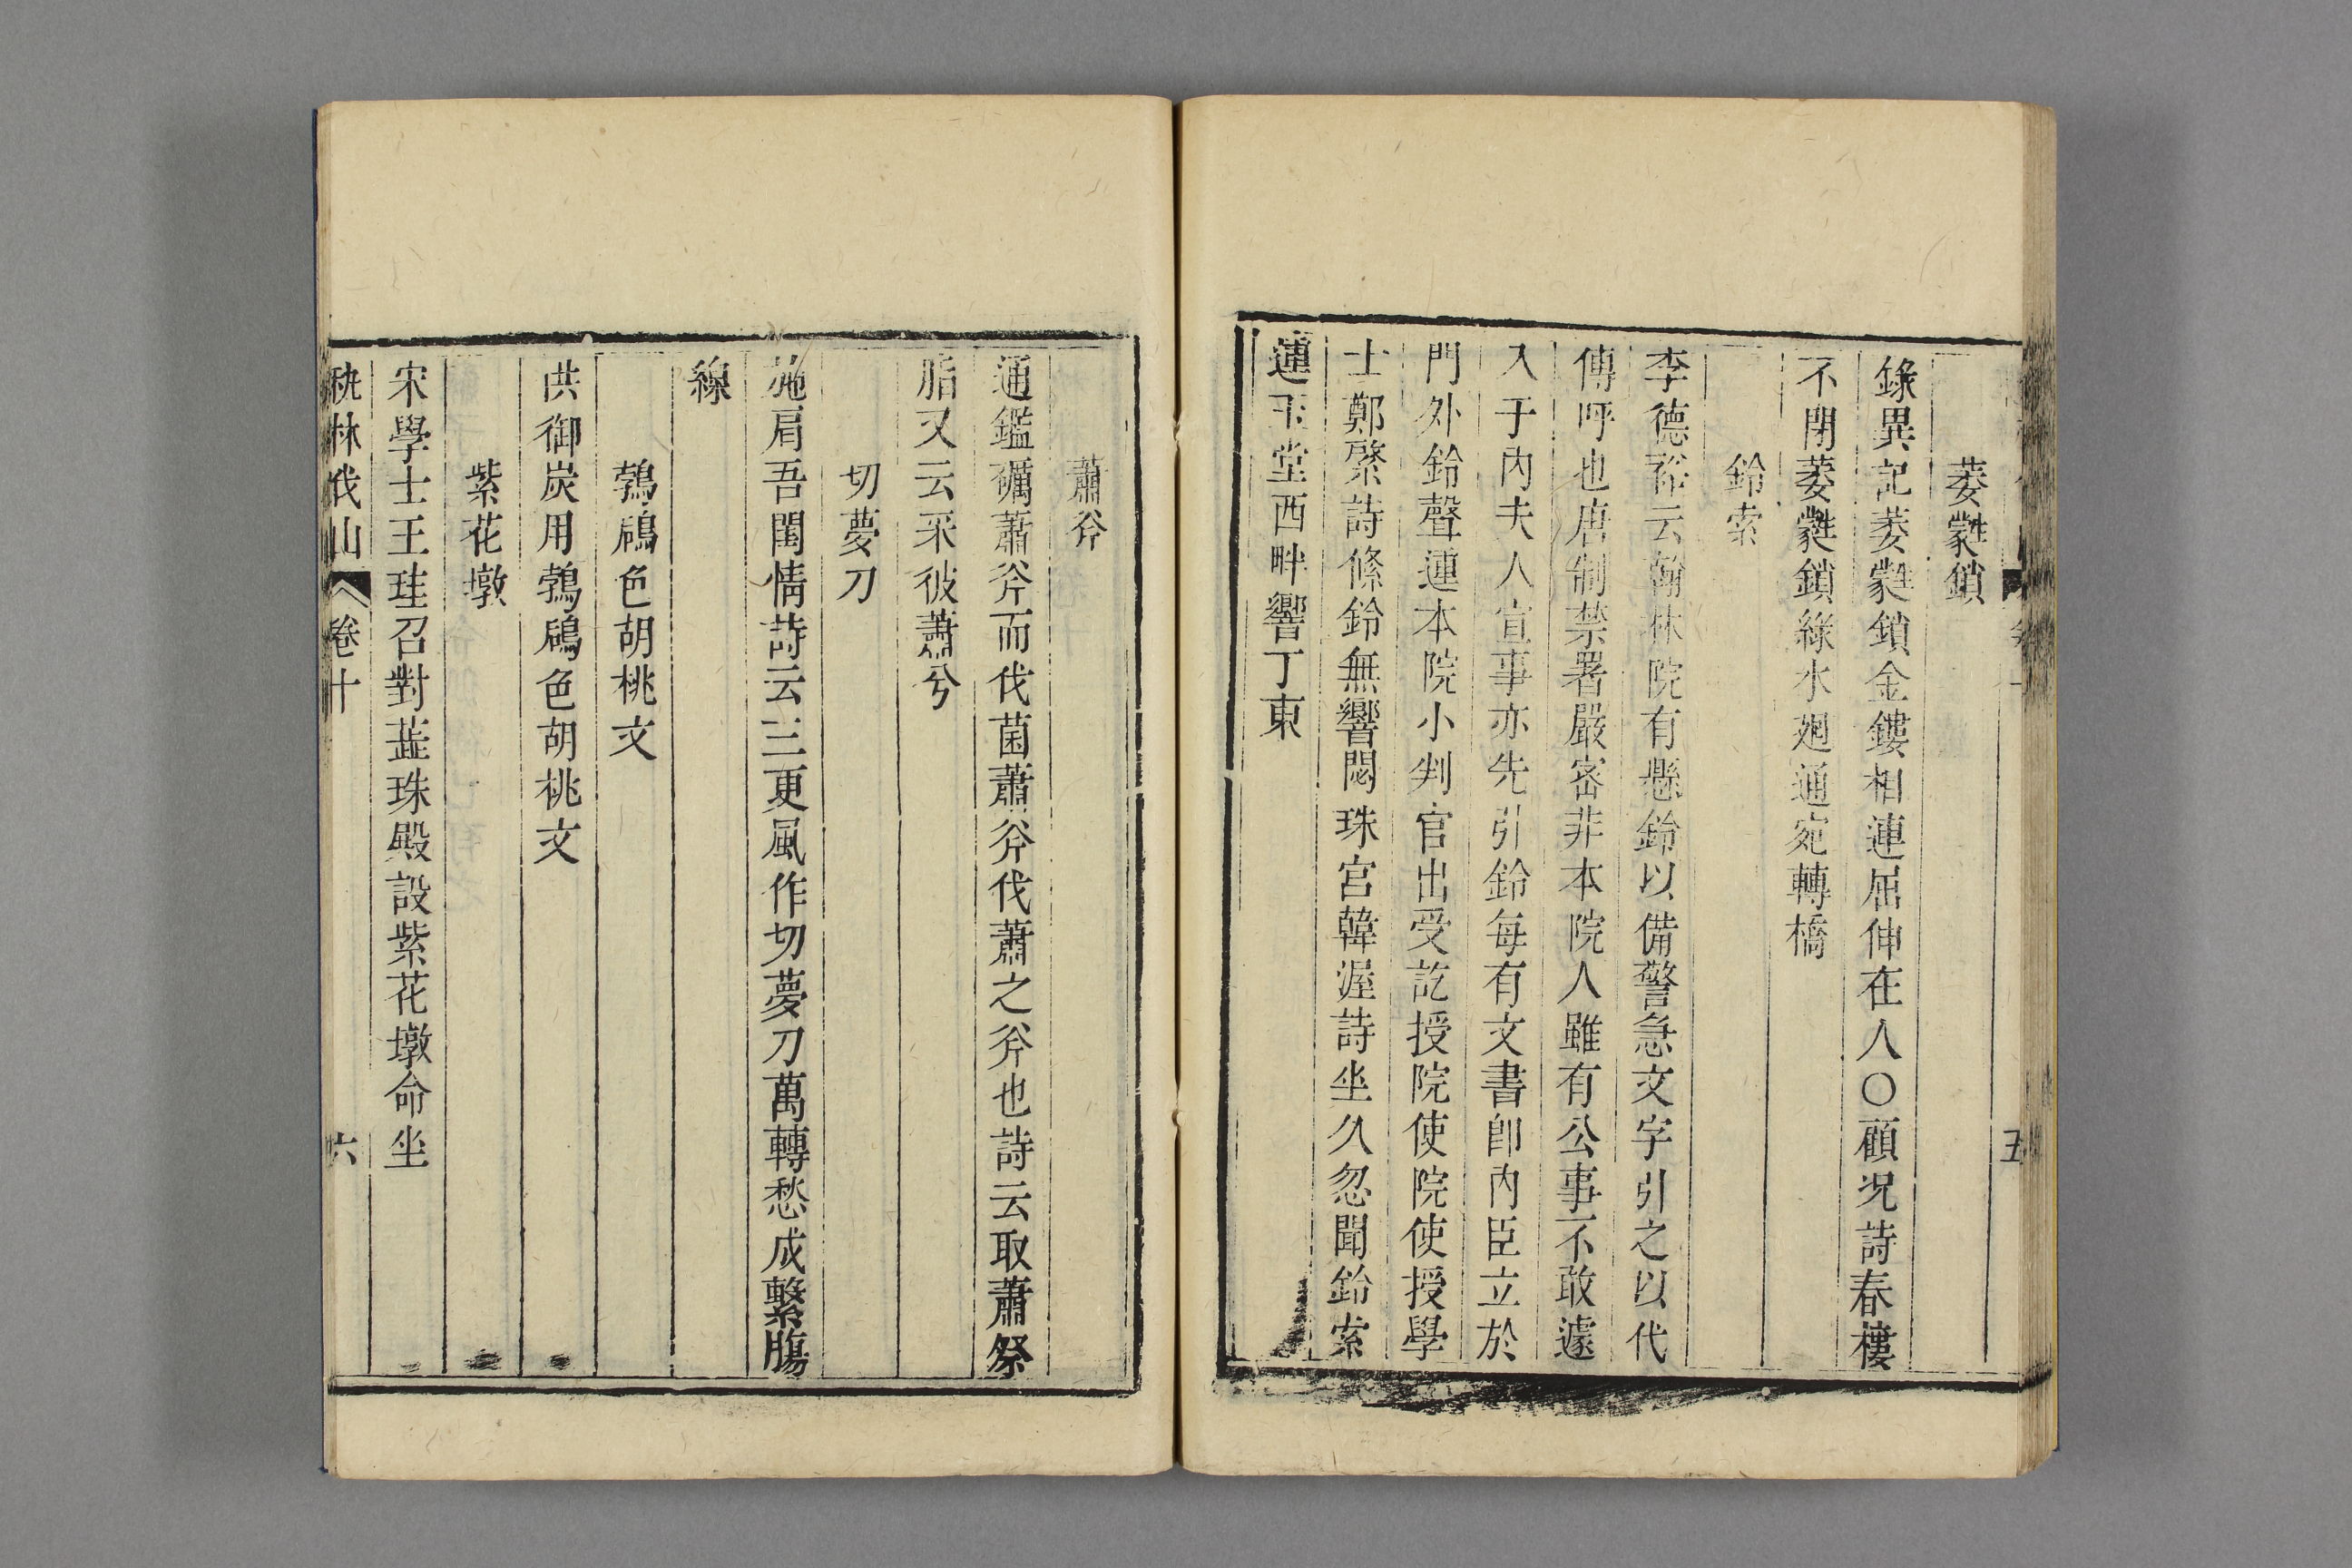 葳蕤鎖
錄異記葳蕤鎖金鏤相連屈伸在人〇顧况詩春樓
不閉葳蕤鎖綠水廻通宛轉橋
鈴索
李德裕云翰林院有懸鈴以備警急文字引之以代
傳呼也唐制禁署嚴密非本院人雖有公事不敢遽
入于內夫人宣事亦先引鈴每有文書卽內臣立於
門外鈴聲連本院小判官出受訖授院使院使授學
士鄭綮詩條鈴無響閟珠宮韓渥詩坐久忽聞鈴索
連玉堂西畔響丁東
五
蕭斧
通鑑礪蕭斧而伐菌蕭斧伐蕭之斧也詩云取蕭祭
脂又云采彼蕭兮
切夢刀
施肩吾閨情詩云三更風作切夢刀萬轉愁成繫膓
線
鶉鴣色胡桃文
供御炭用鶉鴣色胡桃文
紫花墩
宋學士王珪召對蕋珠殿設紫花墩命坐
秇林伐山 卷十 六